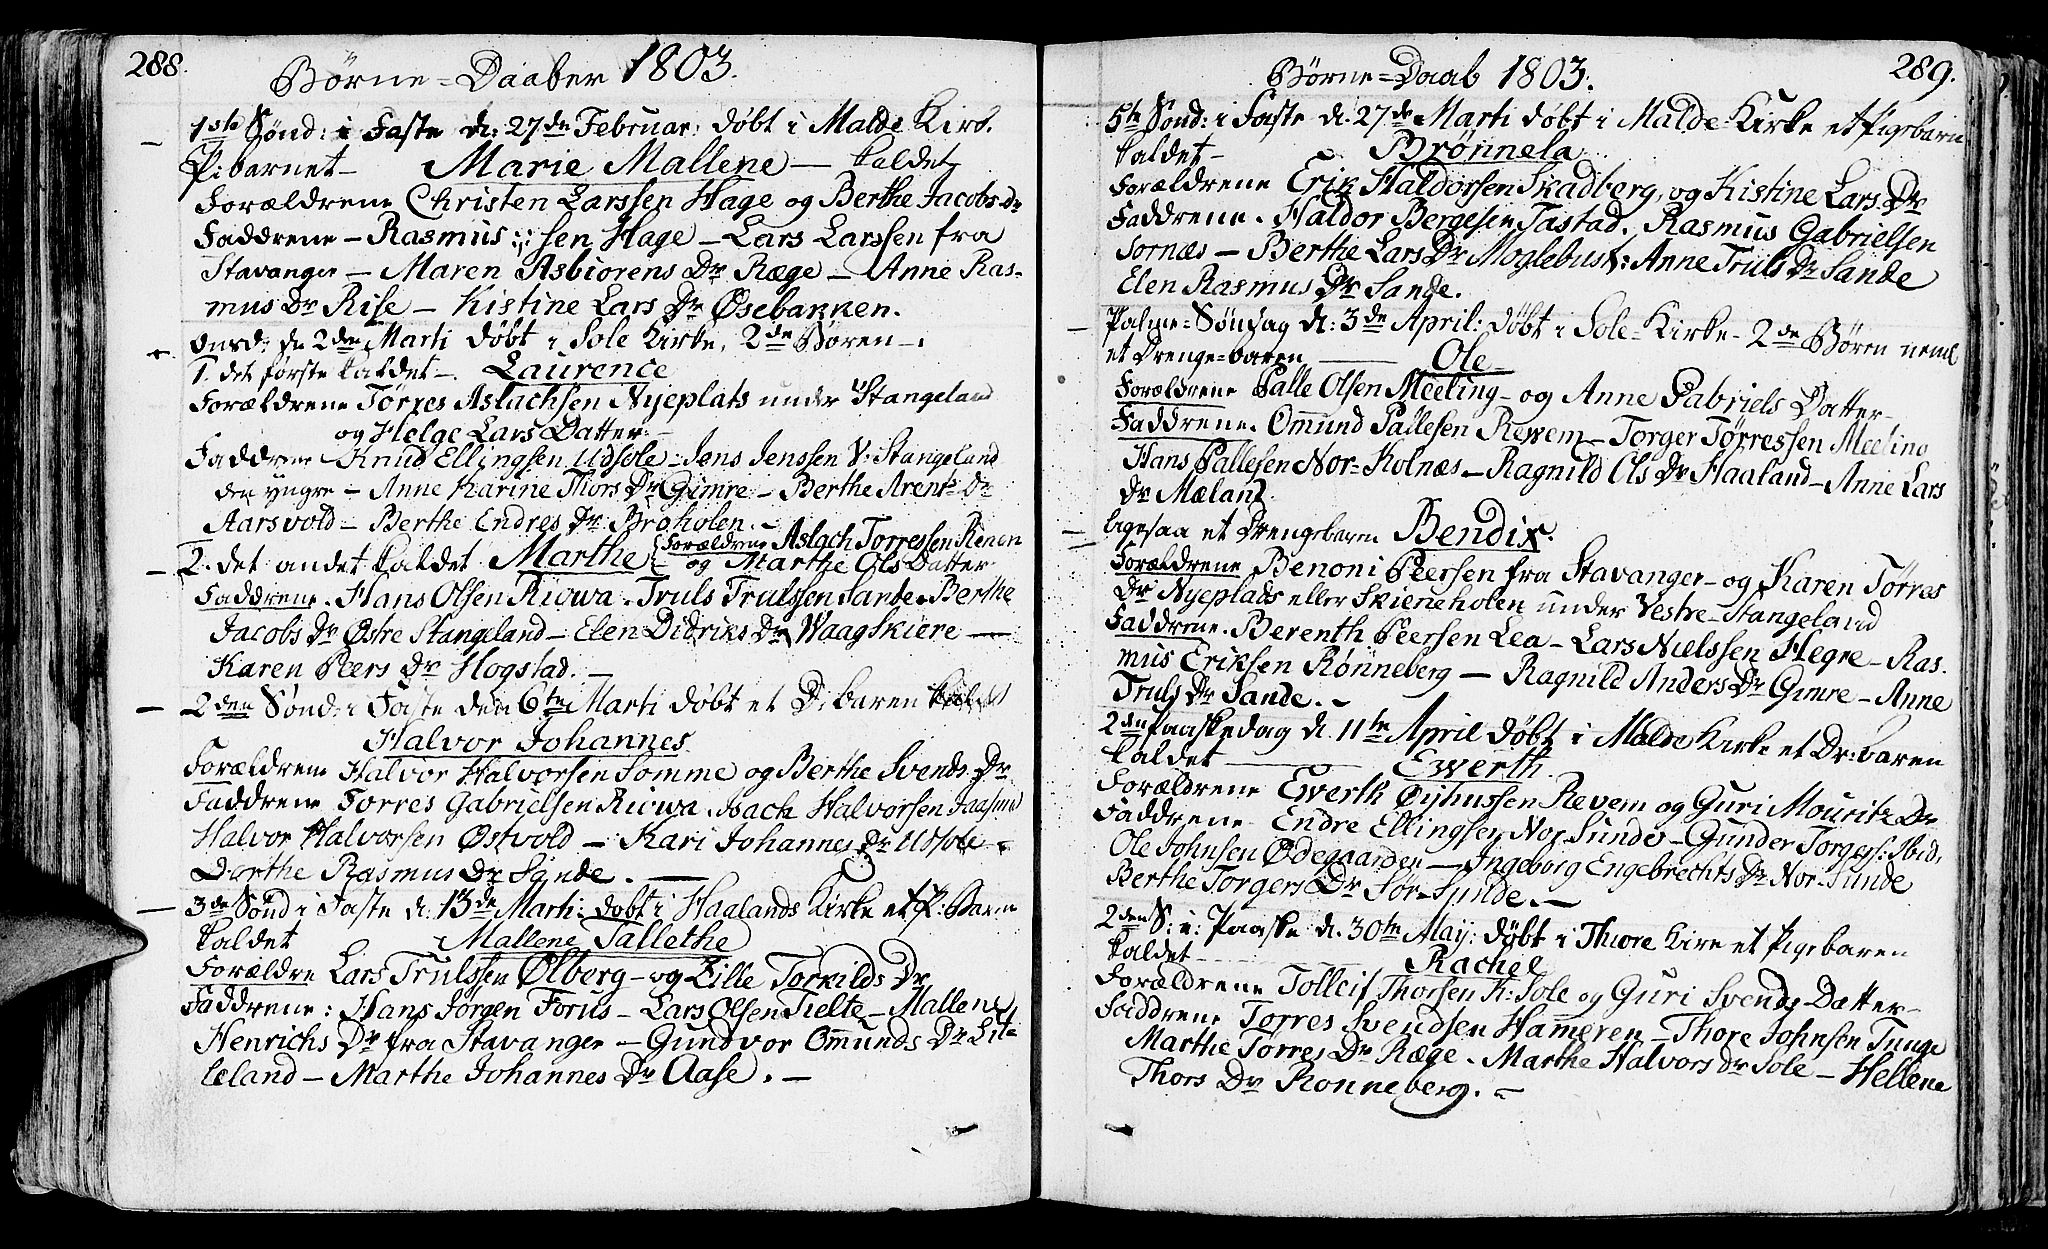 288.
Børne=Daaber 1803.
1ste Sønd: i Faste d: 27de Februar: døbt i Malde Kirk.
P: barnet — Marie Mallene — kaldet
Forældrene Christen Larssen Hage og Berthe Jacobs Dr
Faddrene — Rasmus sen Hage — Lars Larssen fra
Stavanger — Maren Asbiorens Dr Ræge — Anne Ras-
mus Dr Rise — Kistine Lars Dr Øsebakken.
Onsd: d. 2den Marti døbt i Sole Kirke, 2de Børen —.
1. det første kaldet —. Laurence
Forældrene Törres Aslachsen Nyeplats under Stangeland
og Helge Lars Datter.
Faddrene Knud Ellingsen Udsole — Jens Jenssen V: Stangeland
den yngre — Anne Karine Thors Dr Gimre — Berthe Arent Dr
Aarsvold — Berthe Endres Dr Broholen. —
2. det andet kaldet Marthe Forældrene Aslach Torressen
og Marthe Ols Datter
Faddrene. Hans Olsen Riowa. Truls Trulssen Sande. Berthe
Jacobs Dr Østre Stangeland — Elen Didriks Dr Waagskiere —
Karen Peers Dr Hogstad. —
2den Sønd: i Faste den 6te Marti døbt et D: baren kaldet
Halvor Johannes
Forældrene Halvor Halvorsen Somme og Berthe Svends Dr
Faddrene Torres Gabrielsen Riowa. Isach Halvorsen
Halvor Halvorsen Østvold — Kari Johannes Dr Udsole —
Dorthe Rasmus Dr Sande. —
3de Sønd i Faste d: 13de Marti: døbt i Haalands Kirke et P: Baren
kaldet Mallene Tallethe
Forældre Lars Trulssen Ølberg — og Lille Torkilds Dr
Faddrene: Hans Jörgen Forus — Lars Olsen Tielte — Mallene
Henrichs Dr fra Stavanger — Gundvor Omunds Dr Lil-
leland — Marthe Johannes Dr Aase. —
289.
Børne=Daab 1803.
5te Sønd: i Faste d. 27de Marti døbt i Malde Kirke et Pigebarn
kaldet — Brönnela
Forældrene Erik Haldorsen Skadberg, og Kistine Lars Dr
Faddrene. Haldor Bergesen Tastad. Rasmus Gabrielsen
Sornæs — Berthe Lars Dr Moglebust: Anne Truls Dr Sande
Elen Rasmus Dr Sande.
Palme=Søndag d: 3de April: døbt i Sole=Kirke — 2de Børen neml
et Drenge=baren — Ole
Forældrene Palle Olsen Meeling — og Anne Gabriels Datter —
Faddrene. Omund Pallesen Rewem — Torger Törressen Meeling
Hans Pallesen Nor=Kolnæs — Ragnild Ols Dr Haaland — Anne Lars
Dr Mæland.
ligesaa et Drengebaren Bendix.
Forældrene Benoni Peersen fra Stavanger — og Karen Törres
Dr Nyeplads eller Skieneholen under Vestre-Stangeland
Faddrene. Berenth Peersen Lea — Lars Nielssen Hegre — Ras-
mus Eriksen Rönneberg — Ragnild Anders Dr Gimre — Anne
Truls Dr Sande. —
2den Paaskedag d. 11te April døbt i Malde Kirke et Dr: baren
kaldet — Ewerth
Forældrene Ewerth Revem og Guri Mouritz Dr
Faddrene Endre Ellingsen Nor Sunde — Gunder Torgers: Ibid.
Ole Johnsen Ødegaarden — Ingeborg Engebrechts Dr Nor-Sunde
Berthe Torgers Dr Sør-Sunde. —
2den S: e: Paaske d. 30te May: døbt i Thiore Kirk et Pigebaren
kaldet — Rachel
Forældrene Tolleif Thorsen K: Sole og Guri Svends Datter —
Faddrene Torres Svendsen Hameren — Thore Johnsen Tunge
Marthe Torres Dr Ræge. Marthe Halvors Dr Sole — Hellene
Thors Dr Ronneberg. —